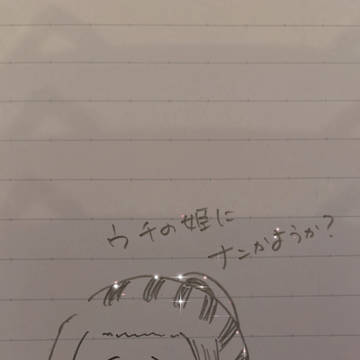 ウチの姫に
ナンかようか?